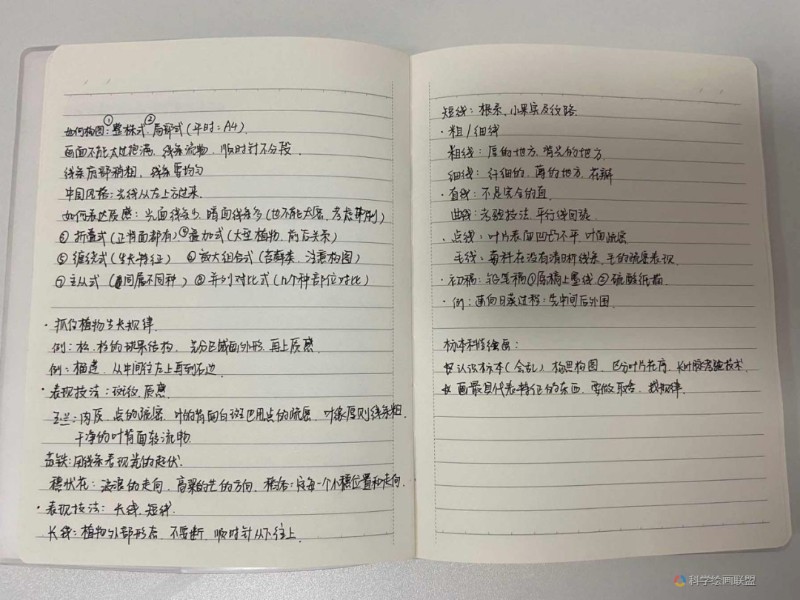 如何构图:①整株式 ②局部式(平时:A4)
画面不能太过饱满,线条流畅,顺时针不分段
线条肩部稍粗,线条要均匀
中国风格:光线从左上方过来
如何表达质感:光面线条少,暗面线条多(也不能太密,考虑印刷)
③折叠式(正背面都有)④叠加式(大型植物,前后关系)
⑤缠绕式(生长特征) ⑥放大组合式(苔藓类,注意构图)
⑦主从式(同属不同种) ⑧并列对比式(几个种部位对比)
·抓住植物生长规律
例:松、杉的球果结构,先分区域画外形,再上质感
例:细莲,从中间往左上再到右边
·表现技法:斑纹,质感
玉兰:内皮,点的疏密,叶的背面白斑也用点的疏密,叶缘厚则线条粗
干净的叶背面转流畅
苏铁:用线条表现光的起伏
穗状花:波浪的走向,高粱的芒的方向,注每一个小穗位置和走向
·表现技法:长线,短线
长线:植物外部形态,不要断,顺时针从下往上
短线:根系、小果实及纹路
·粗/细线
粗线:厚的地方,背光的地方
细线:纤细的、薄的地方,花瓣
·直线:不是完全的直
曲线:考验技法,平行线回弧
·点线:叶片表面凹凸不平,叶面疏密
毛线:每种花没有清晰线条,毛的疏密表现
·初稿:铅笔稿①原稿上墨线②硫酸纸描
·例:画向日葵过程:先中间后外围
标本不好绘画:
认识标本(全乱)构思构图,区分叶片花序,长叶脉考验技术
画最具代表特征的东西,要做取舍,找规律
科学绘画联盟